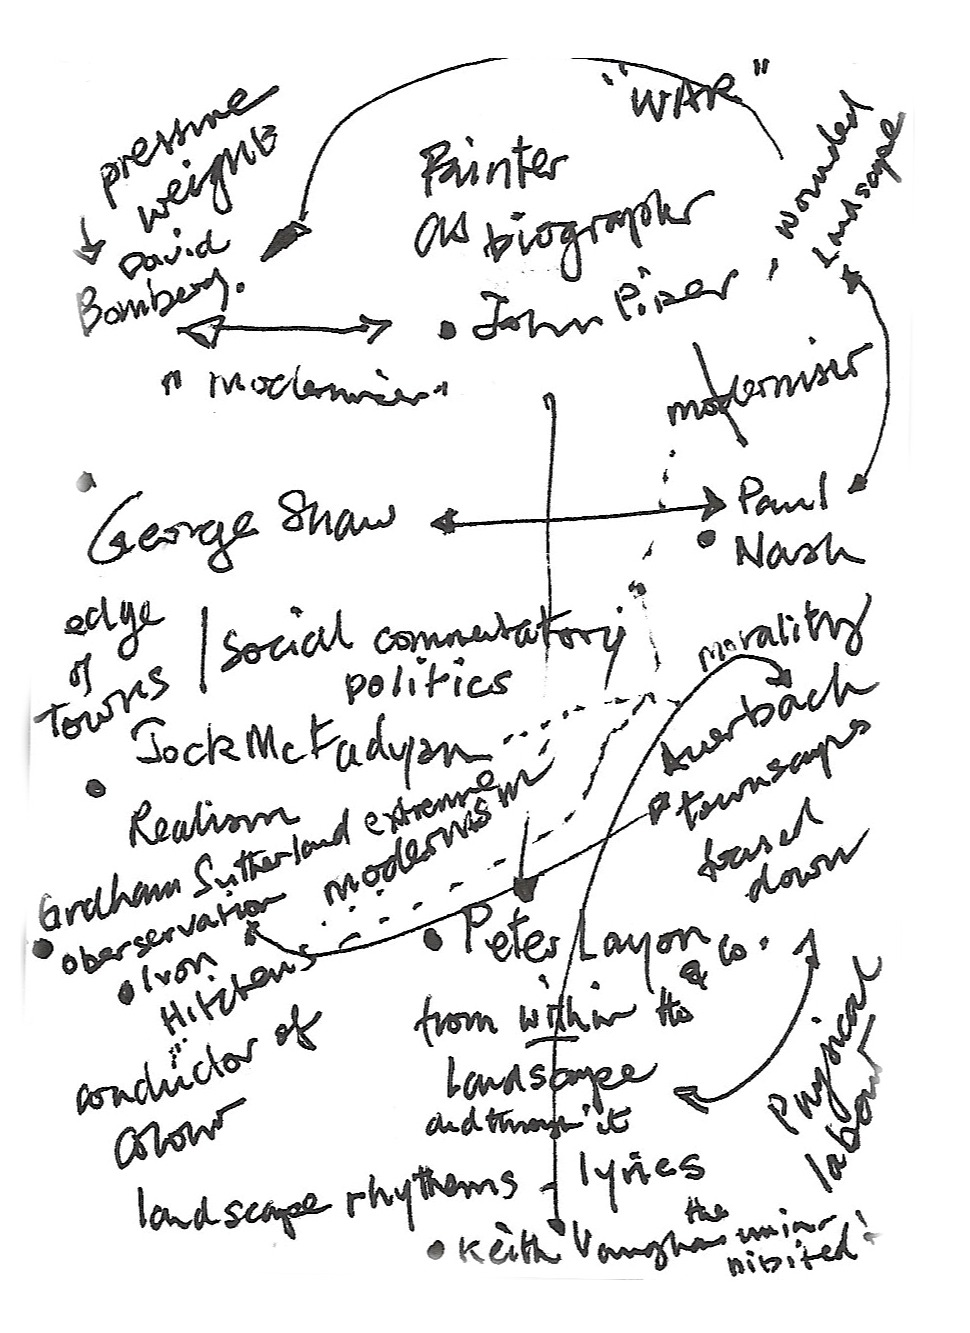 "WAR"
pressure
weight
Painter
as biographer
wounded
landscape
David
Bomberg.
• John Piper
"modernism"
modernism
George Shaw
Paul
• Nash
edge
of
Towns
social commentatory
politics
morality
Jock McFadyen
Auerbach
townscapes
fused
down
Realism
Graham Sutherland extreme
modernism
• oberservation
• Ivon
Hitchens
conductor of
colour
• Peter Layon
& co.
from within the
landscape
and through it
Physical
labour
landscape rhythems - lyrics
• Keith Vaughan the
nibited